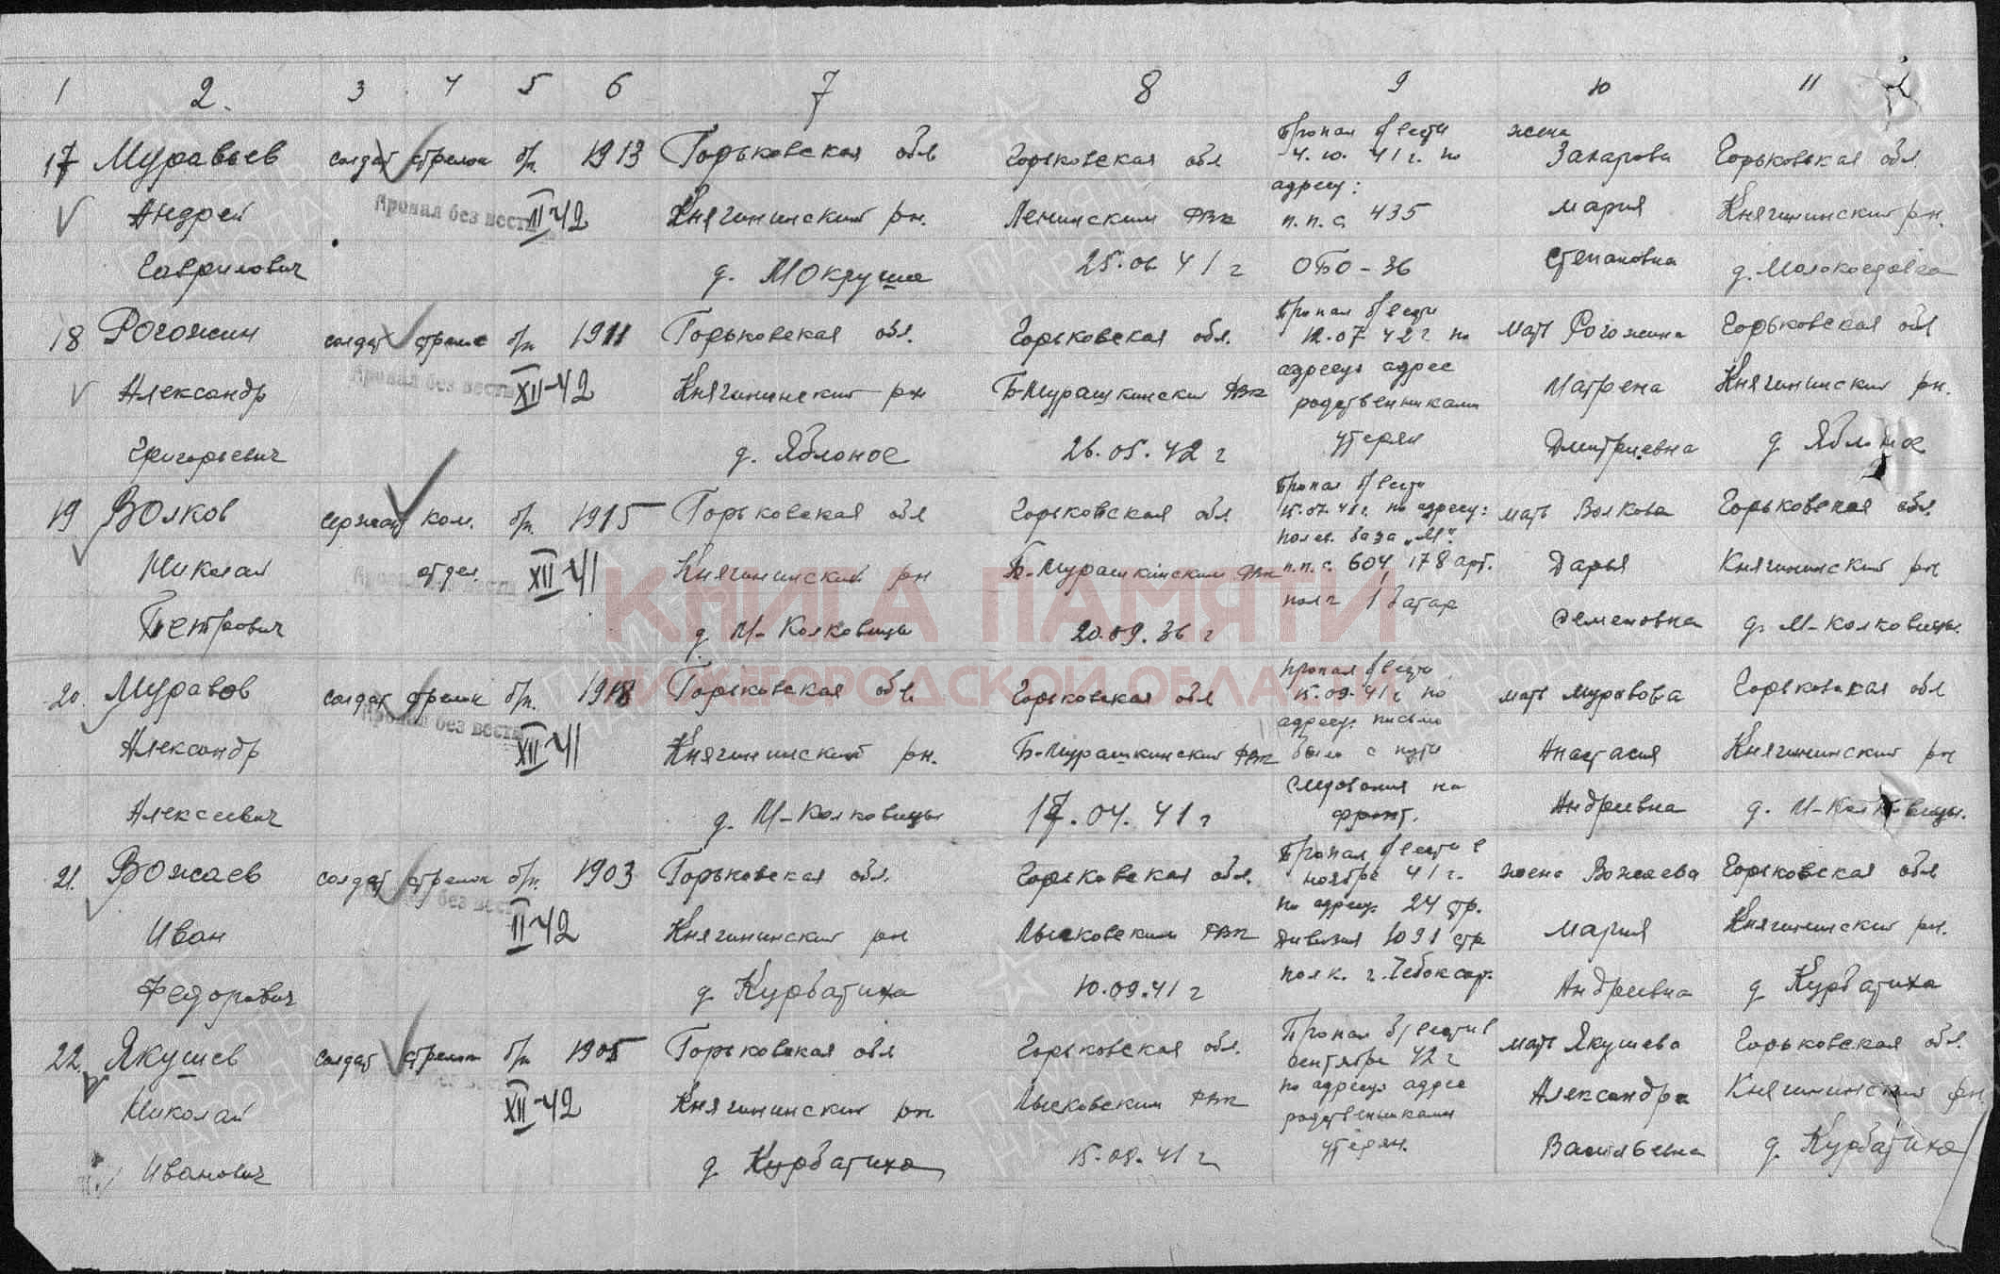 1 2. 3 4 5 6 7 8 9 10 11
17 Муравьев солдат стрелок б/п. 1913 Горьковская обл Горьковская обл Пропал б/вести 4.10.41 г. по адресу: жена Захарова Горьковская обл.
Андрей Пропал без вести II-42 Княгининский рн. Ленинским РВК п.п.с. 435 Мария Княгининский рн.
Гаврилович д. Мокруша 25.06 41 г ОБО-36 Степановна д.
18 Рогожин солдат стрелк б/п. 1911 Горьковская обл. Горьковская обл. Пропал б/вести 12.07 42 г по мать Рогожина Горьковская обл
Александр Пропал без вести XII-42 Княгининский рн Б-Мурашкинским РВК адресу адрес родственниками Матрена Княгининский рн.
Григорьевич д. Яблоное 26.05.42 г утерян Дмитриевна д Яблоное
19 Волков сержант ком. б/п. 1915 Горьковская обл Горьковская обл Пропал б/вести 15.07.41 г. по адресу: мать Волкова Горьковская обл.
Николай отдел XII-41 Княгининский рн Б-Мурашкинским РВК база „М“. п.п.с. 604, 178 арт. Дарья Княгининский рн
Петрович д. М-Колковицы 20.09.36 г полк 1 батар Семеновна д. М-Колковицы.
20. Муравов солдат стрелк б/п. 1918 Горьковская обл. Горьковская обл Пропал б/вести 15.09.41 г по мать Муравова Горьковская обл
Александр Пропал без вести XII-41 Княгининский рн. Б-Мурашкинским РВК адресу: письмо было с пути Анастасия Княгининский рн
Алексеевич д. М-Колковицы 17.04.41 г следования на фронт. Андреевна д. М-Колковицы.
21. Вожаев солдат стрелок б/п. 1903 Горьковская обл. Горьковская обл. Пропал б/вести с ноября 41 г. жена Вожаева Горьковская обл
Иван без вести II-42 Княгининский рн Лысковским РВК по адресу: 24 стр. дивизия 1091 стр Мария Княгининский рн.
Федорович д Курбатиха 10.09.41 г полк. г. Чебоксар. Андреевна д Курбатиха
22. Якушев солдат стрелок б/п 1905 Горьковская обл Горьковская обл. Пропал б/вести в сентябре 42 г мать Якушева Горьковская обл.
Николай XII-42 Княгининский рн Лысковским РВК по адресу адрес родственниками Александра Княгининский рн.
Иванович д Курбатиха 15.09.41 г утерян. Васильевна д. Курбатиха
КНИГА ПАМЯТИ
НИЖЕГОРОДСКОЙ ОБЛАСТИ